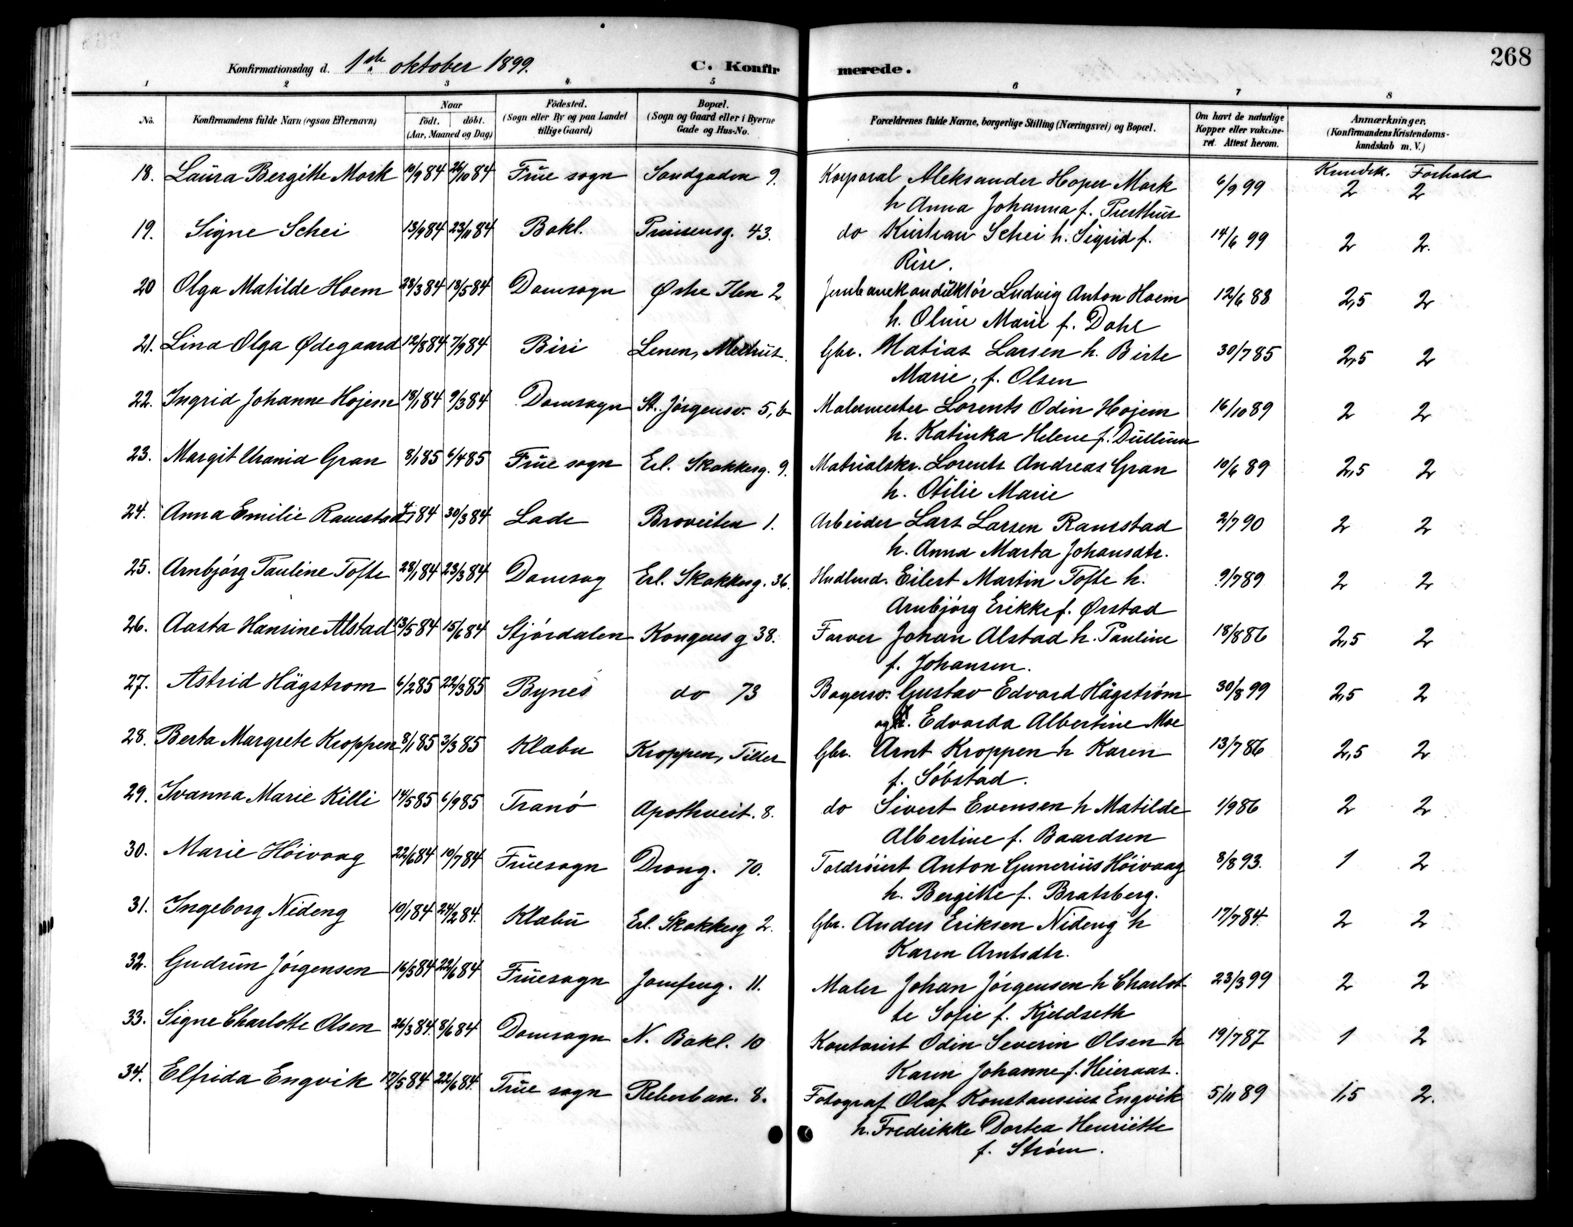 268
Konfirmationsdag d. 1ste oktober 1899.
C. Konfirmerede.
1 2 3 4 5 6 7 8
No. Konfirmandens fulde Navn (ogsaa Efternavn) Naar født. døbt. (Aar, Maaned og Dag) Fødested. (Sogn eller By og paa Landet tillige Gaard) Bopæl. (Sogn og Gaard eller i Byerne Gade og Hus-No. Forældrenes fulde Navne, borgerlige Stilling (Næringsvei) og Bopæl. Om havt de naturlige Kopper eller vaccineret. Attest herom. Anmærkninger. (Konfirmandens Kristendomskundskab m. V.)
Kundsk. Forhold
18. Laura Bergitte Mork 19/9 84 26/10 84 Frue sogn Sandgaden 9. Korporal Aleksander Hoper Mork 6/9 99 2 2
h Anna Johanna f. Presthus
19. Signe Schei 13/9 84 23/11 84 Bakl. Prinsensg. 43. do Kristian Schei h. Sigrid f. 14/6 99 2 2.
Rise.
20 Olga Matilde Hoem 23/3 84 18/5 84 Domsogn Østre Ilen 2 Jernbanekonduktør Ludvig Anton Hoem 12/6 88 2,5 2
h. Oline Marie f. Dahl
21. Lina Olga Ødegaard 12/8 84 7/9 84 Biri Lenen, Melhus. Gbr. Matias Larsen h. Birte 30/7 85 2,5 2
Marie, f. Olsen
22. Ingrid Johanne Hojem 18/1 84 9/3 84 Domsogn St. Jørgensv. 5,b Malermester Lorents Odin Hojem 16/10 89 2 2
h. Katinka Helene f. Dullum
23. Margit Urania Gran 8/1 85 6/4 85 Frue sogn Erl. Skakkesg. 9. Matrialskr. Lorents Andreas Gran 10/6 89 2,5 2
h. Otilie Marie
24. Anna Emilie Ramstad 7/1 84 30/3 84 Lade Broveiten 1. Arbeider Lars Larsen Ramstad 2/7 90 2 2
h. Anna Marta Johansdtr.
25. Arnbjørg Pauline Tofte 28/1 84 23/3 84 Domsog Erl. Skakkesg. 36. Hndlsmd. Eilert Martin Tofte h. 9/7 89 2 2
Arnbjørg Erikke f. Ørstad
26. Aasta Hansine Alstad 13/5 84 15/6 84 Stjørdalen Kongensg 38. Farver Johan Alstad h. Pauline 18/8 86 2,5 2
f. Johansen.
27. Astrid Hägstrom 6/2 85 22/3 85 Bynes do 73 Bagersv. Gustav Edvard Hägstrøm 30/8 99 2,5 2
og Edvarda Albertine Moe
28. Berta Margrete Kroppen 3/1 85 3/3 85 Klæbu Kroppen, Tiller Gbr. Arnt Kroppen h Karen 13/7 86 2,5 2
f. Søbstad.
29. Ivanna Marie Killi 14/5 85 6/9 85 Tranø Apothveit. 8. do Sivert Evensen h Matilde 1/9 86 2 2
Albertine f. Baardsen
30. Marie Høivaag 22/6 84 10/7 84 Fruesogn Drong. 70. Toldrøiert Anton Gunerius Høivaag 8/8 93. 1 2
h. Bergitte f. Bratsberg.
31. Ingeborg Nideng 10/1 84 24/2 84. Klæbu Erl. Skakkesg 2. Gbr. Anders Eriksen Nideng h 17/7 84. 2 2
Karen Arntsdtr.
32. Gudrun Jørgensen 16/3 84 22/6 84 Fruesogn Jomfrug. 11. Maler Johan Jørgensen h Charlot- 23/3 99 2 2
te Sofie f. Kjeldseth
33. Signe Charlotte Olsen 26/3 84. 8/6 84 Domsogn N. Bakl. 10 Kontorist Odin Severin Olsen h 19/7 87 1 2
Karen Johanne f. Heieraas.
34. Elfrida Engvik 17/5 84 22/6 84 Frue sogn Reberban. 8. Fotograf Olaf Konstansius Engvik 5/11 89 1,5 2.
h. Fredrikke Dortea Henriette
f. Strøm.